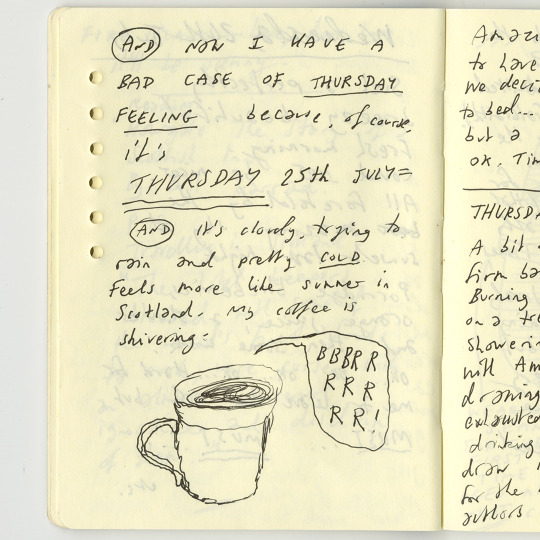 AND NOW I HAVE A
BAD CASE OF THURSDAY
FEELING because, of course,
it's
THURSDAY 25th JULY=
AND it's cloudy, trying to
rain and pretty COLD
Feels more like summer in
Scotland. My coffee is
shivering:
BBBRR
RRR
RR!
Amazi
to have
we deci
to bed...
but a
OK. Tim
THURSDA
A bit
firm ba
Burning
on a tre
showerin
with Am
drawing
exhausted
drinking
draw
for the
authors